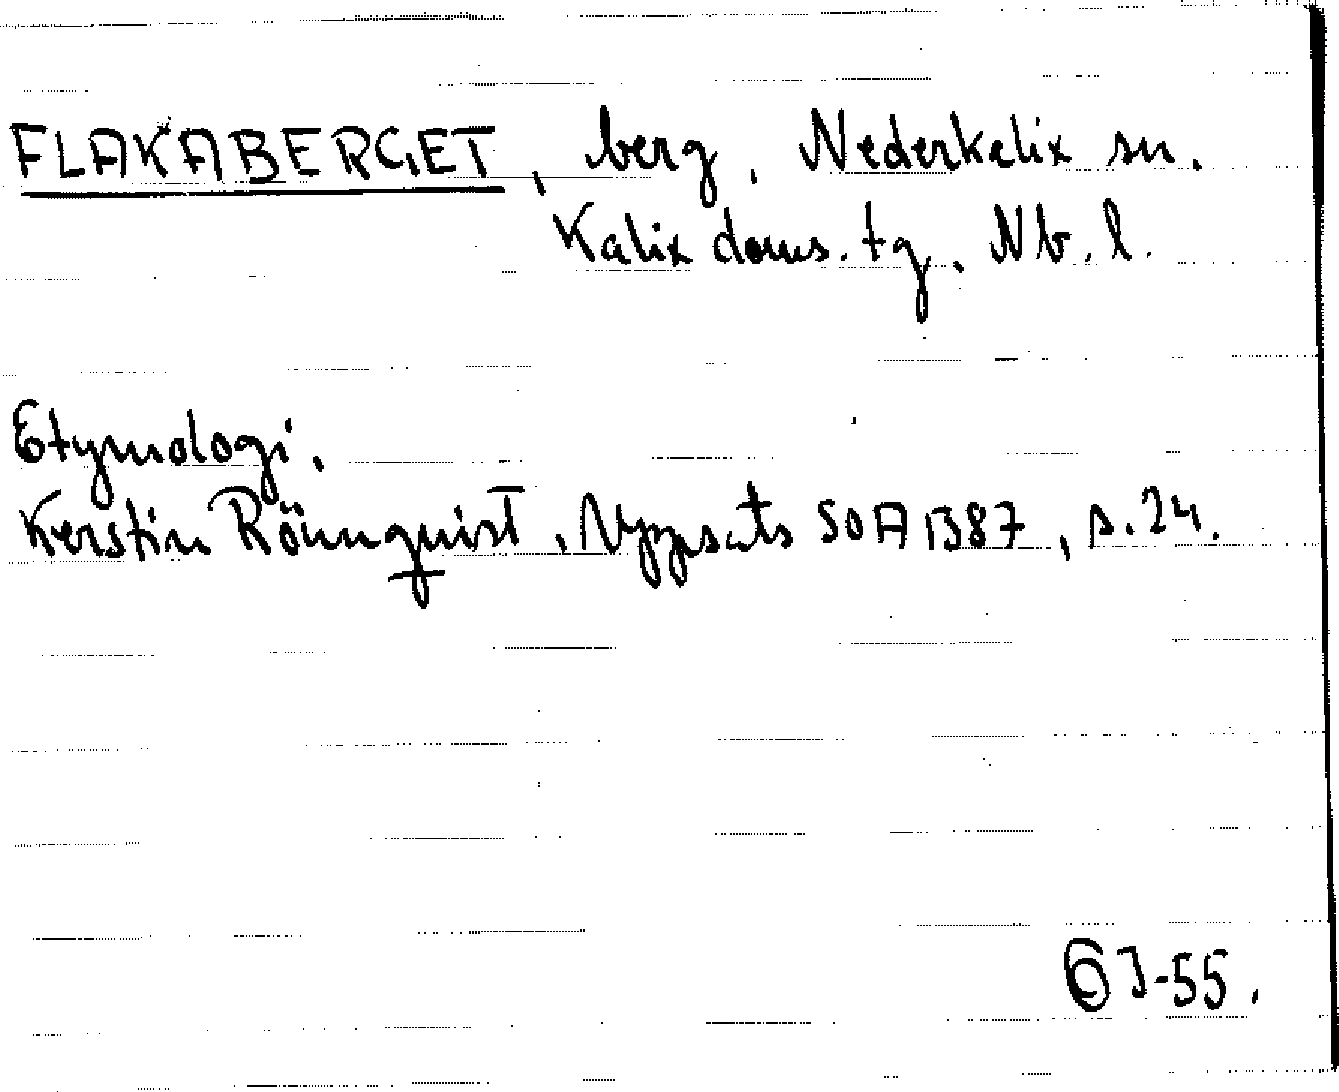 FLAKABERGET, berg, Nederkalix sn.
Kalix doms. tg. Nb. l.
Etymologi.
Kerstin Rönnquist, Uppsats SOA B87, s. 24.